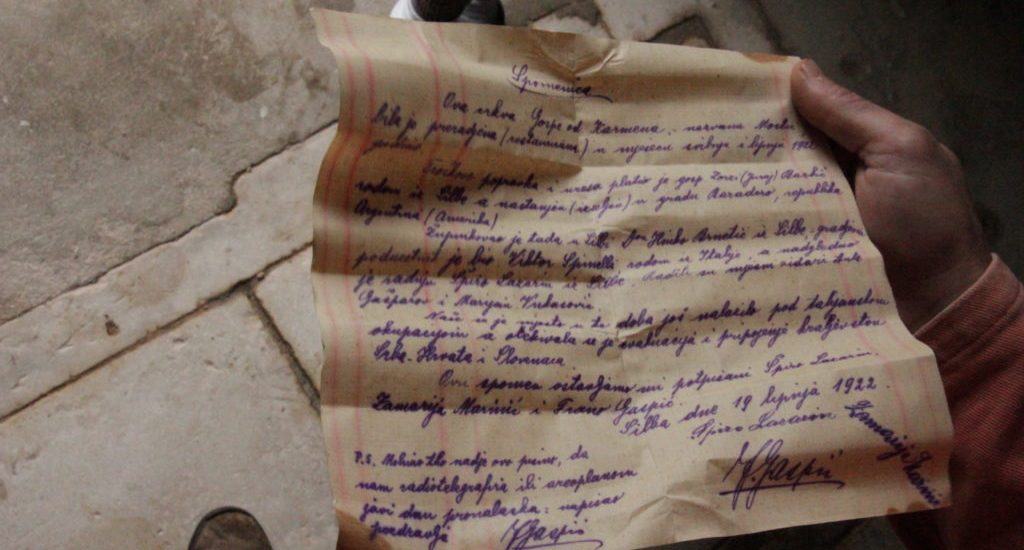 Spomenica
Ova crkva Gospe od Karmena, nazvana
bila je pregradjena (restaurirana) u mjesecu svibnju i lipnju 1922
Troškove popravka i uresa platio je gosp. Zorzi (Juraj)
rodom iz Silbe a nastanjen u gradu Baradero, republika
Argentina (Amerika)
Župnikovao je tada u Silbi Don Hinko iz Silbe, gradjevni
poduzetnik je bio Viktor Spinelli rodom iz Italije, a nadgledao
je radnju Špiro Lazarin iz Silbe. Radili su mjesni zidari Ante
Gašparov i Marijan
Naše se je mjesto u to doba još nalazilo pod talijanskom
okupacijom a očekivala se je evakuacija i pripojenje kraljevstvu
Srba-Hrvata i Slovenaca.
Ovu spomen ostavljamo mi potpisani Špiro Lazarin,
Zamarija Marinić i Frano Gašpić.
Silba dne 19 lipnja 1922.
Špiro Lazarin
Zamarija Marinić
F. Gašpić
P.S. Molimo tko nadje ovo pismo, da
nam radiotelegrafira ili aeroplanom
javi dan pronalaska: napisao
pozdravlja FGašpić